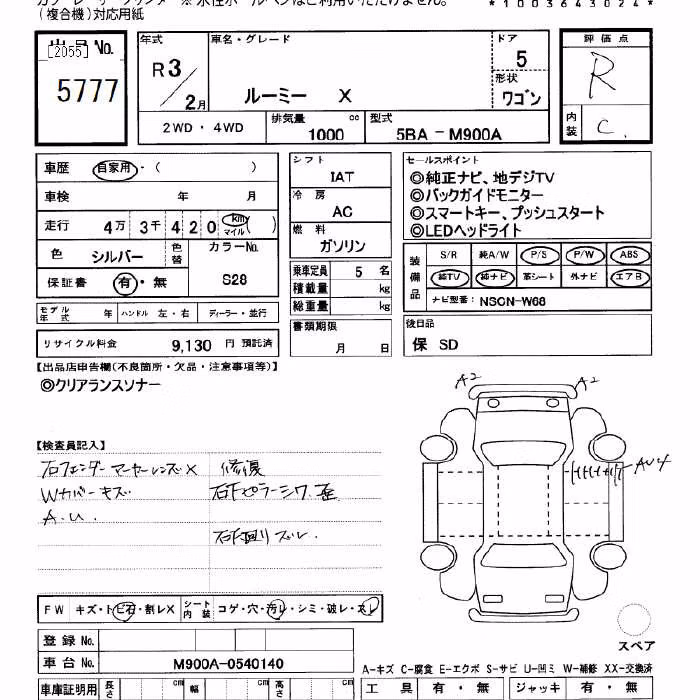 (複合機)対応用紙
*1003643024*
出品No.
[2055]
5777
年式
R3/2月
車名・グレード
ルーミー X
ドア
5
形状
ワゴン
評価点
R
内装
C.
2WD・4WD
排気量 cc
1000
型式
5BA-M900A
車歴 自家用・( )
車検 年 月
走行 4万3千420 km マイル ( )
色 シルバー 色替 カラーNo. S28
保証書 有・無
モデル年式 年 ハンドル 左・右 ディーラー・並行
リサイクル料金 9,130 円 預託済
シフト
IAT
冷房
AC
燃料
ガソリン
乗車定員 5 名
積載量 kg
総重量 kg
書類期限
月 日
セールスポイント
◎純正ナビ、地デジTV
◎バックガイドモニター
◎スマートキー、プッシュスタート
◎LEDヘッドライト
装備品
S/R 純A/W P/S P/W ABS
純TV 純ナビ 革シート 外ナビ エアB
ナビ型番: NSCN-W68
後日品
保 SD
【出品店申告欄(不良箇所・欠品・注意事項等)】
◎クリアランスソナー
【検査員記入】
右フェンダーマーカーレンズX 修復
Wカバーキズ 右Fピラーシワ 歪
A.U.
A2 A2
FW キズ・トビ石・割レX シート内装 コゲ・穴・汚レ・シミ・破レ・スレ
登録No.
車台No. M900A-0540140
スペア
A-キズ C-腐食 E-エクボ S-サビ U-凹ミ W-補修 XX-交換済
車庫証明用 長さ cm 幅 cm 高さ cm
工具 有・無 ジャッキ 有・無